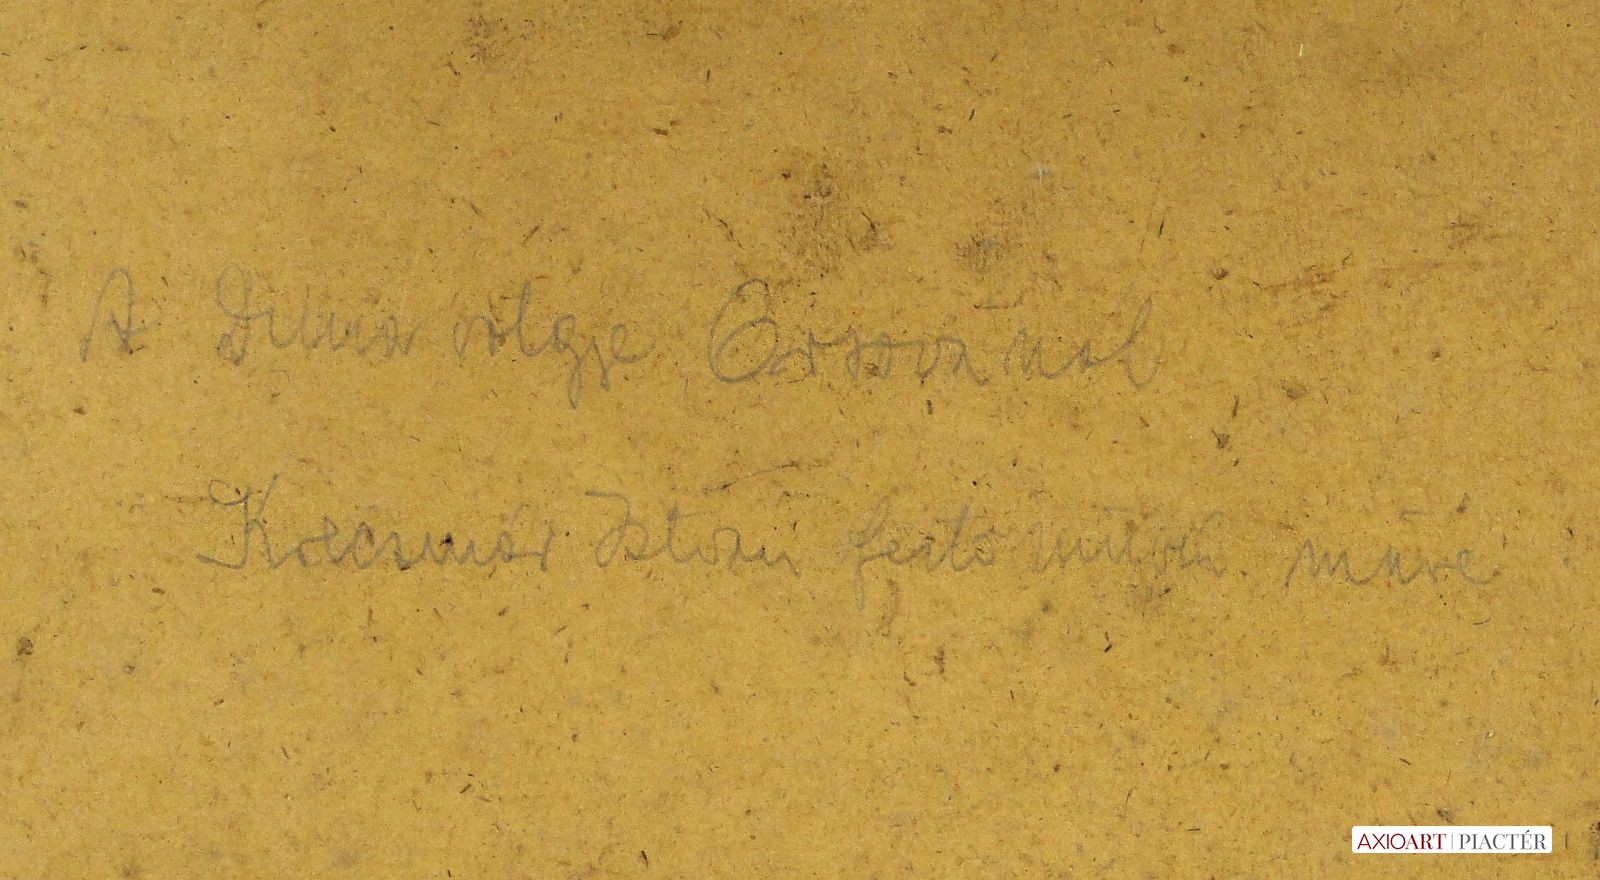 A Duna völgye Orsovánál
Krecsmár István festőművész műve
AXIOART | PIACTÉR